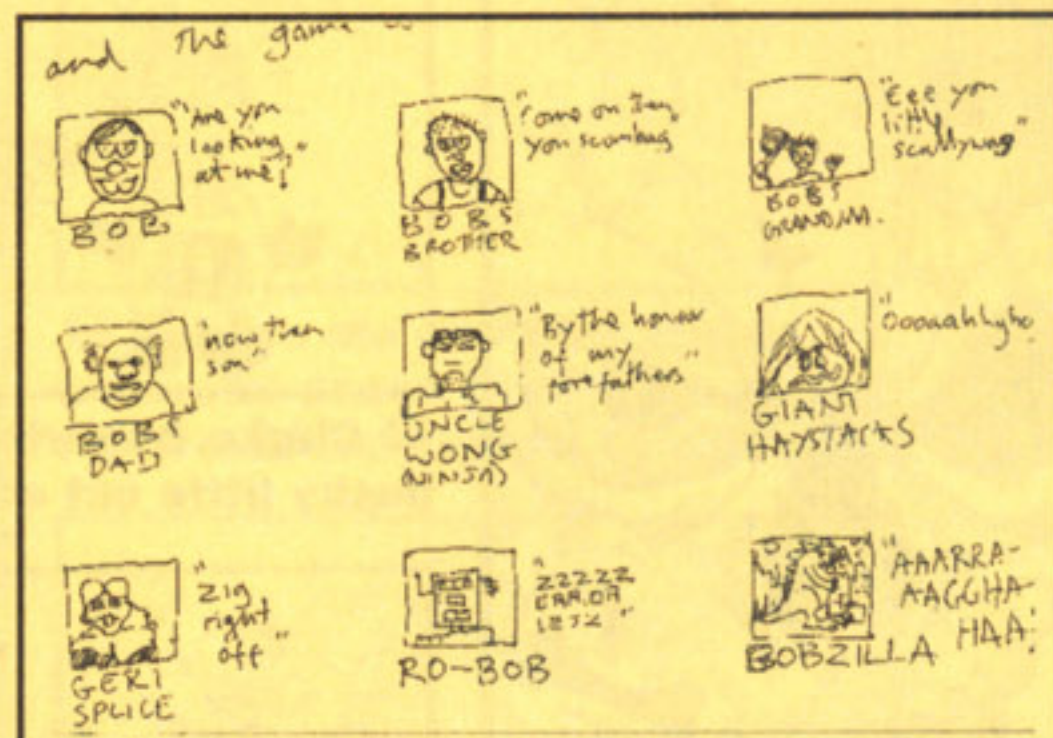 and The game
"Are you
looking
at me?"
BOB
"Come on then
you scumbag
BOBS
BROTHER
"Eee you
little
scallywag"
BOBS
GRANDMA.
"now then
son"
BOBS
DAD
"By the honour
of my
forefathers"
UNCLE
WONG
(NINJA)
"Oooaahhgho
GIANT
HAYSTACKS
"zig
right
off"
GERI
SPLICE
"ZZZZZ
ERROR
RO-BOB
"AAARRA-
AAGGHA-
HAA!
BOBZILLA